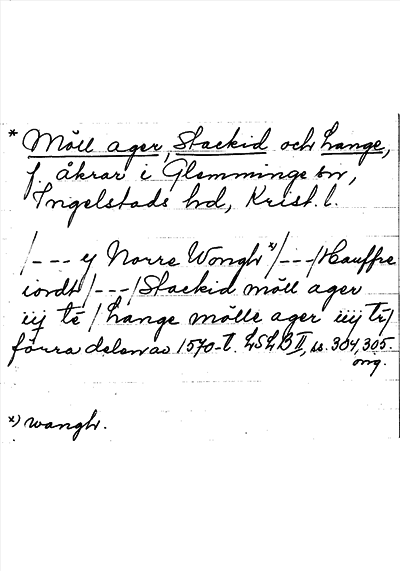 * Möll ager, Stackid och Lange,
f. åkrar i Glemminge sn,
Ingelstads hd, Krist. l.
/--- y Norre Wongh x)/---/Hauffre
iordt/---/Stackid möll ager
iij tē/Lange mölle ager iiij tr/
förra delen av 1570-t. LSLB II, ss. 304, 305.
orig.
x) wangh.